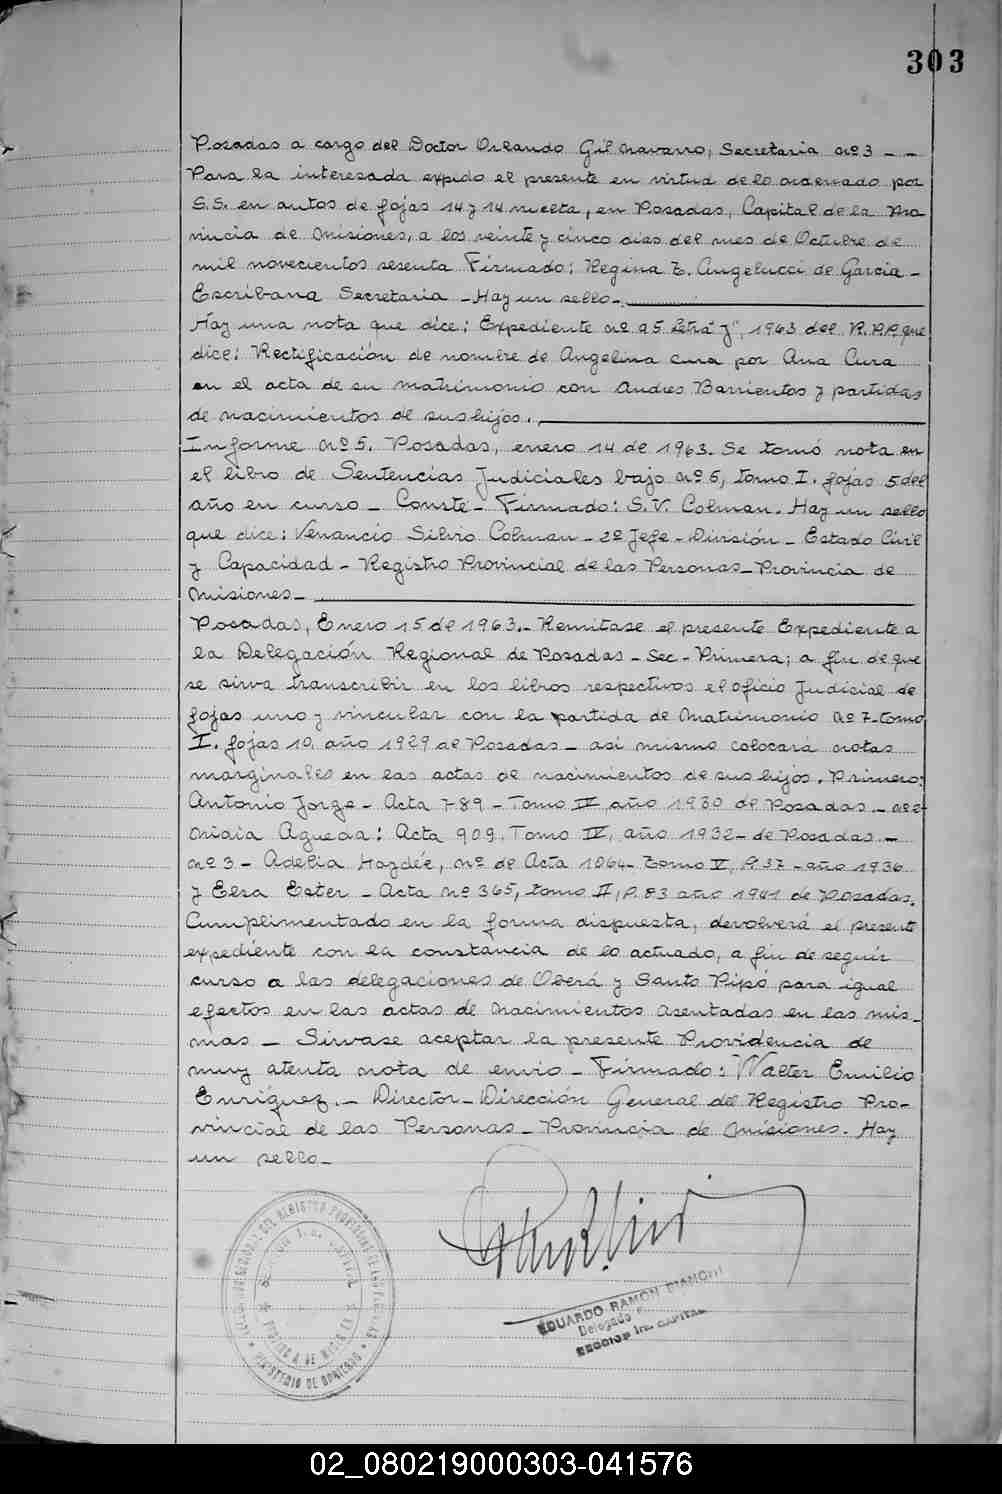 303
Posadas a cargo del Doctor Orlando Gil Navarro, Secretaria Nº 3 - -
Para la interesada expido el presente en virtud de lo ordenado por
S.S. en autos de fojas 14 y 14 vuelta, en Posadas, Capital de la Pro
vincia de Misiones, a los veinte y cinco dias del mes de Octubre de
mil novecientos sesenta Firmado: Regina E. Angelucci de Garcia -
Escribana Secretaria - Hay un sello -.
Hay una nota que dice: Expediente nº 95 Letra "J", 1963 del R.P.P. que
dice: Rectificación de nombre de Angelina Cura por Ana Cura
en el acta de su matrimonio con Andres Barrientos y partidas
de nacimientos de sus hijos.
Informe Nº 5. Posadas, enero 14 de 1963. Se tomó nota en
el libro de Sentencias Judiciales bajo Nº 5, tomo I. fojas 5 del
año en curso - Conste - Firmado: S.V. Colman. Hay un sello
que dice: Venancio Silvio Colman - 2º Jefe - División - Estado Civil
y Capacidad - Registro Provincial de las Personas - Provincia de
Misiones -
Posadas, Enero 15 de 1963.- Remitase el presente Expediente a
la Delegación Regional de Posadas - Sec - Primera; a fin de que
se sirva transcribir en los libros respectivos el oficio Judicial de
fojas uno y vincular con la partida de Matrimonio Nº 7 - tomo
I. fojas 10. año 1929 de Posadas - asi mismo colocará notas
marginales en las actas de nacimientos de sus hijos. Primero:
Antonio Jorge - Acta 789 - Tomo IV año 1930 de Posadas. - Nº 2
Agueda: Acta 909. Tomo IV, año 1932 - de Posadas. -
nº 3 - Adelia Haydée, nº de Acta 1064 - tomo V, P. 37 - año 1936
y Elsa Ester - Acta nº 365, tomo II, P. 83 año 1941 de Posadas.
Cumplimentado en la forma dispuesta, devolverá el presente
expediente con la constancia de lo actuado, a fin de seguir
curso a las delegaciones de Oberá y Santo Pipó para igual
efectos en las actas de Nacimientos asentadas en las mis-
mas - Sirvase aceptar la presente Providencia de
muy atenta nota de envio - Firmado: Walter Emilio
Enriquez. - Director - Dirección General del Registro Pro-
vincial de las Personas - Provincia de Misiones. Hay
un sello -
EDUARDO RAMON BIANCHI
Delegado
SECCION 1ra. CAPITAL
02_080219000303-041576